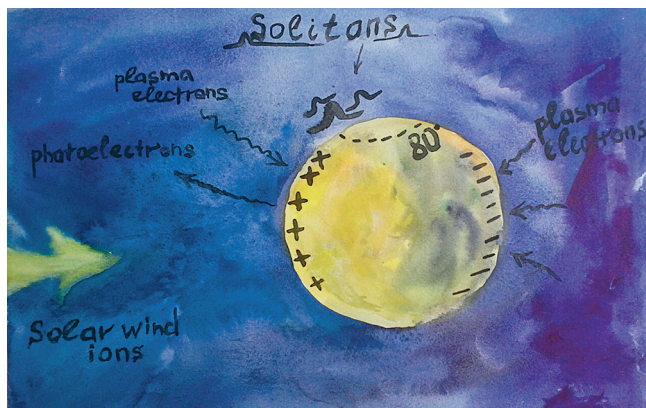 Solitons
plasma
electrons
photoelectrons
80
plasma
electrons
Solar wind
ions